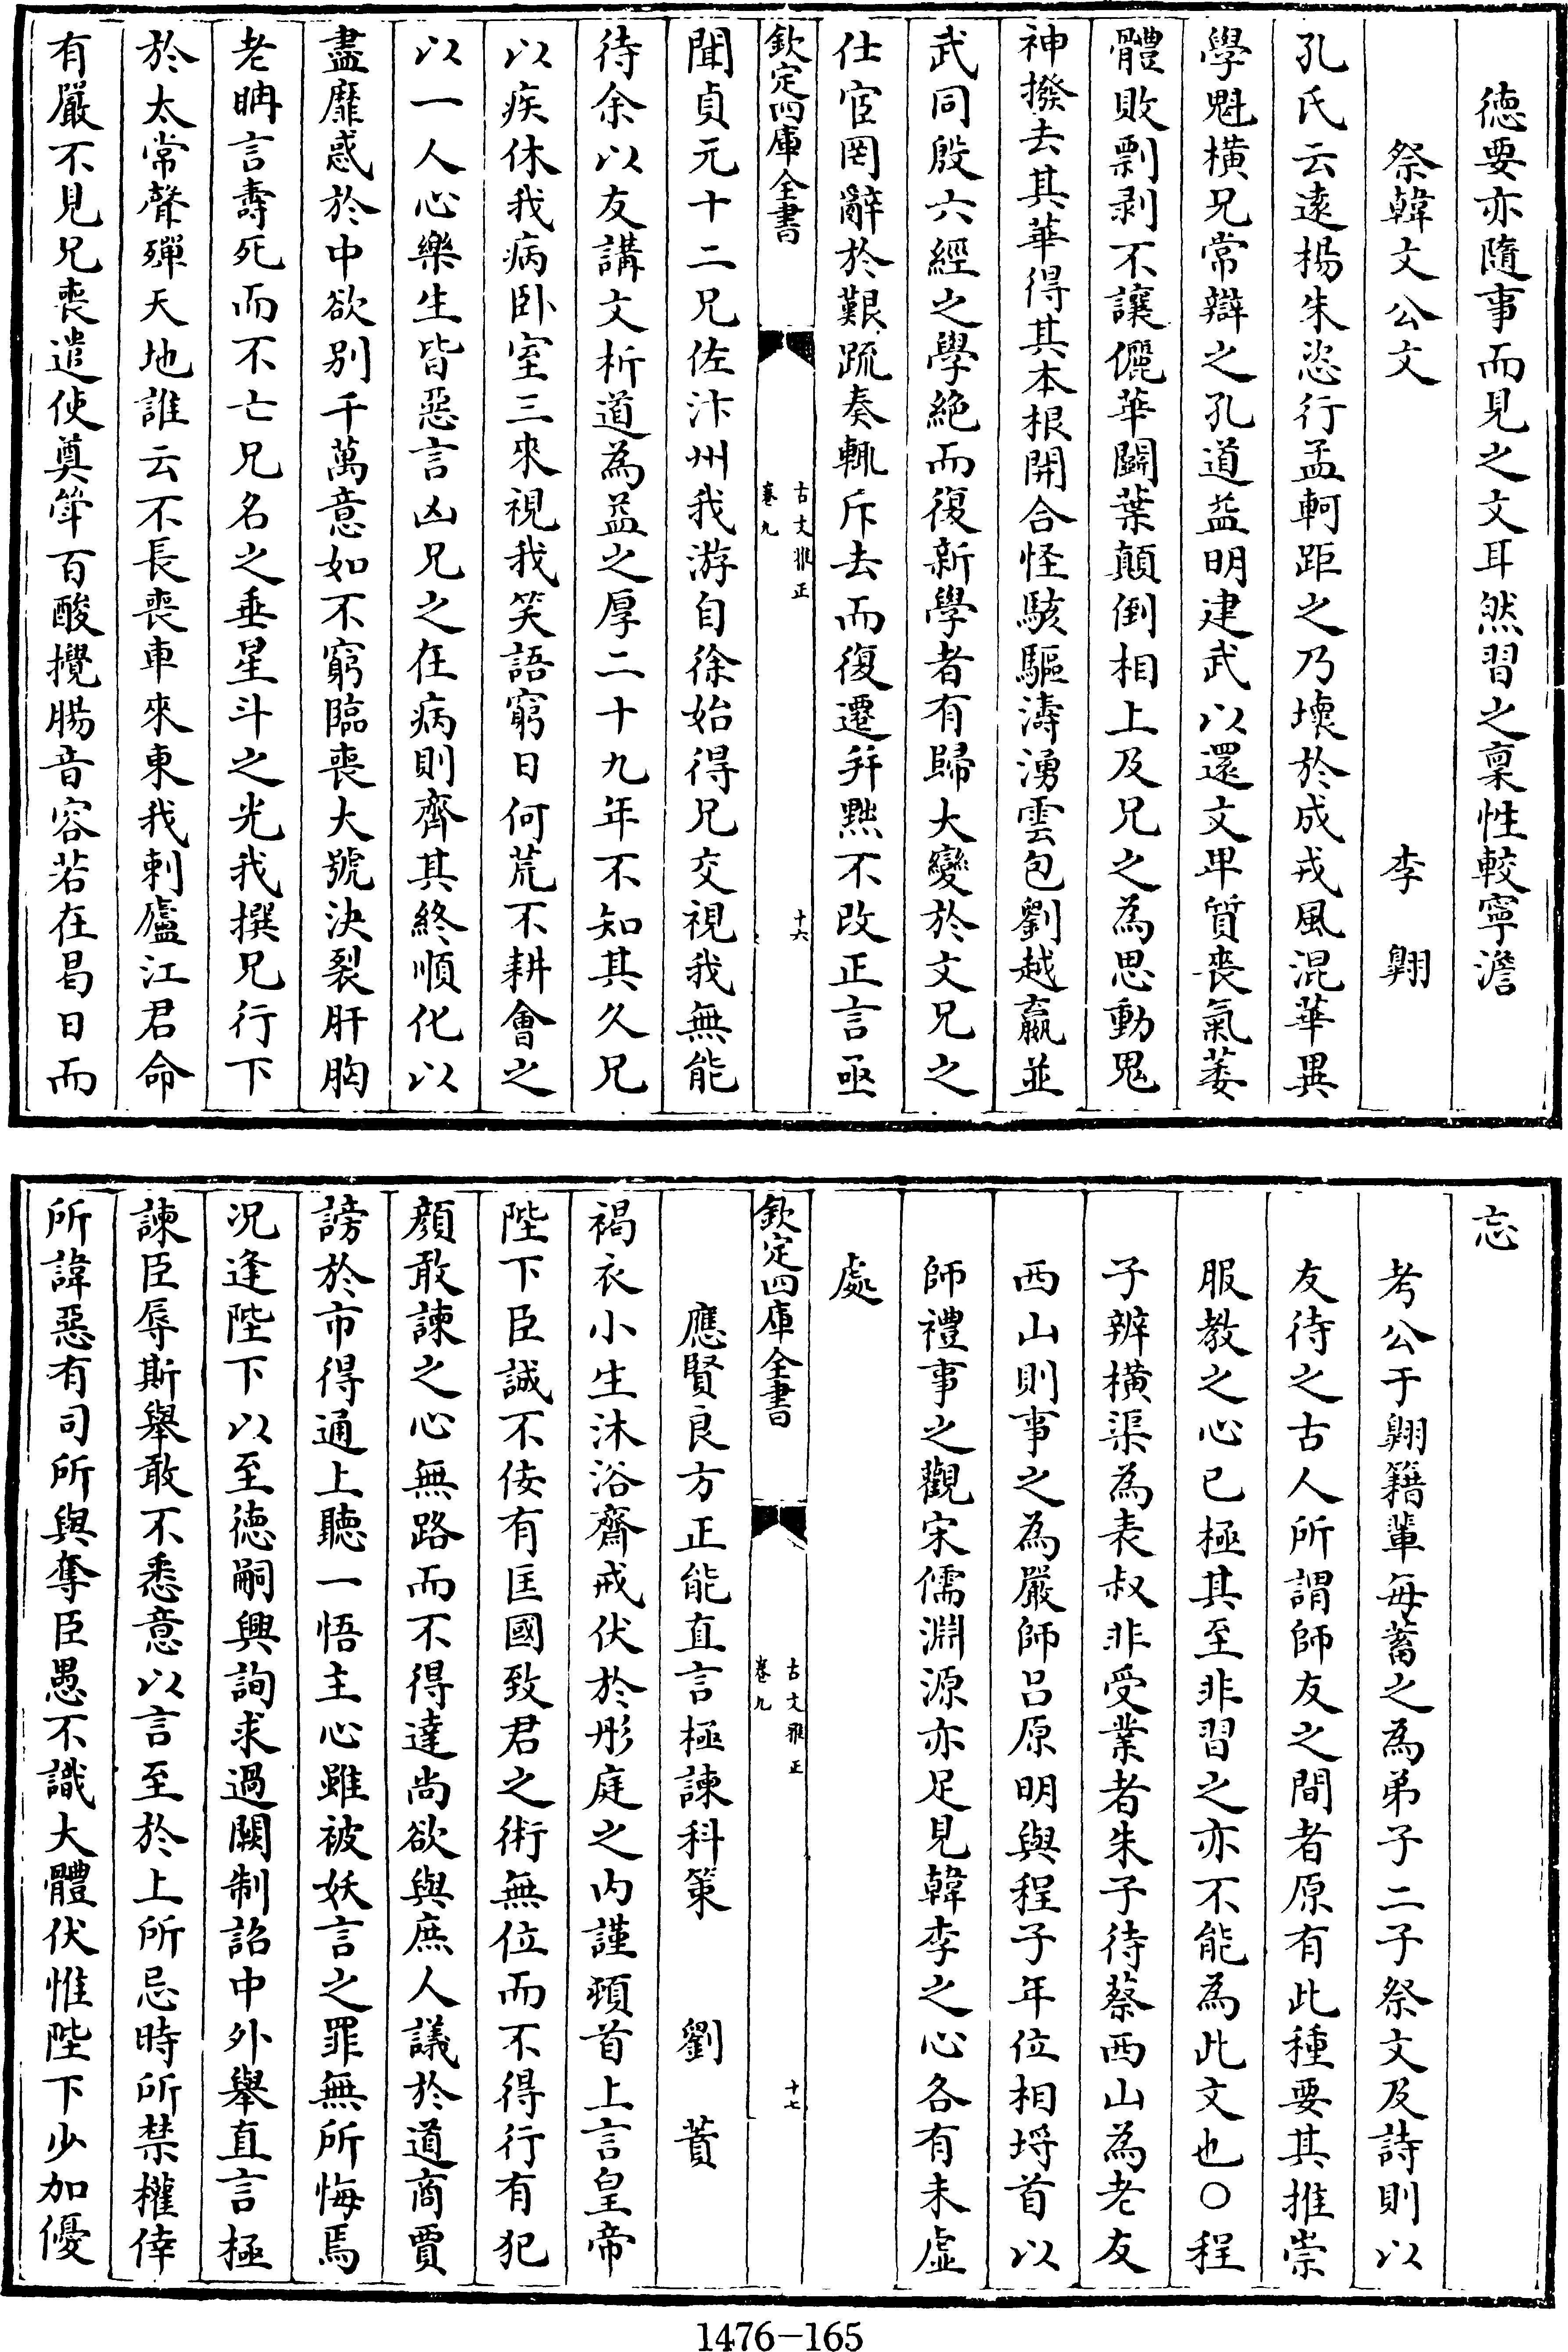 德要亦隨事而見之文耳然習之稟性較寧澹
祭韓文公文 李翺
孔氏云遠楊朱恣行孟軻距之乃壞於成戎風混華異
學魁橫兄常辯之孔道益明建武以還文卑質喪氣萎
體敗剽剥不讓儷華鬭葉顛倒相上及兄之為思動鬼
神撥去其華得其本根開合怪駭驅濤湧雲包劉越嬴並
武同殷六經之學絶而復新學者有歸大變於文兄之
仕宦罔辭於艱疏奏輒斥去而復遷并黜不改正言亟
欽定四庫全書
古文雅正
卷九
十六
聞貞元十二兄佐汴州我游自徐始得兄交視我無能
待余以友講文析道為益之厚二十九年不知其久兄
以疾休我病卧室三來視我笑語窮日何荒不耕會之
以一人心樂生皆惡言凶兄之在病則齊其終順化以
盡靡惑於中欲别千萬意如不窮臨喪大號決裂肝胸
老聃言壽死而不亡兄名之垂星斗之光我撰兄行下
於太常聲殫天地誰云不長喪車來東我刺廬江君命
有嚴不見兄喪遣使奠斝百酸攪腸音容若在曷日而
忘
考公于翺籍輩每蓄之為弟子二子祭文及詩則以
友待之古人所謂師友之間者原有此種要其推崇
服教之心已極其至非習之亦不能為此文也○程
子辨横渠為表叔非受業者朱子待蔡西山為老友
西山則事之為嚴師吕原明與程子年位相埒首以
師禮事之觀宋儒淵源亦足見韓李之心各有未虛
處
欽定四庫全書
古文雅正
卷九
十七
應賢良方正能直言極諫科策 劉蕡
褐衣小生沐浴齋戒伏於彤庭之内謹頓首上言皇帝
陛下臣誠不佞有匡國致君之術無位而不得行有犯
顔敢諫之心無路而不得達尚欲與庶人議於道商賈
謗於市得通上聽一悟主心雖被妖言之罪無所悔焉
况逢陛下以至德嗣興詢求過闕制詔中外舉直言極
諫臣辱斯舉敢不悉意以言至於上所忌時所禁權倖
所諱惡有司所與奪臣愚不識大體伏惟陛下少加優
1476-165